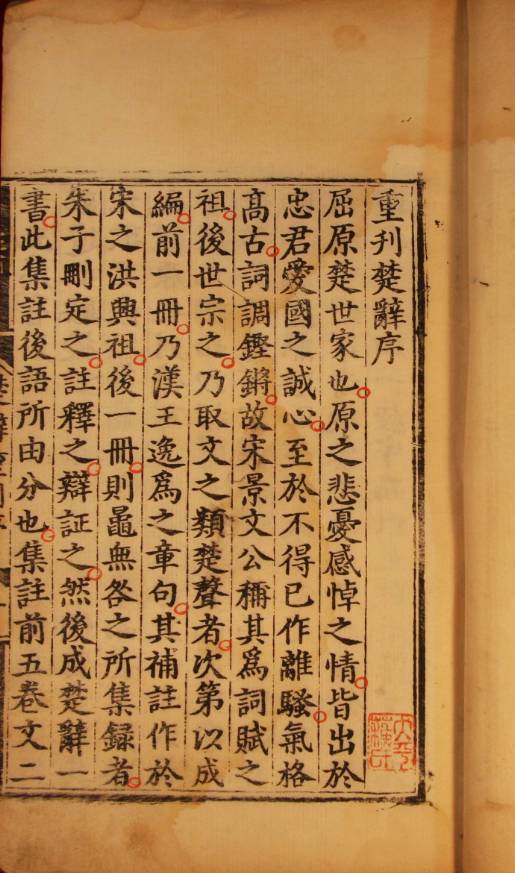 重刊楚辭序
屈原楚世家也原之悲憂感悼之情皆出於
忠君愛國之誠心至於不得已作離騷氣格
高古詞調鏗鏘故宋景文公稱其爲詞賦之
祖後世宗之乃取文之類楚聲者次第以成
編前一冊乃漢王逸爲之章句其補註作於
宋之洪興祖後一冊則鼂無咎之所集録者
朱子刪定之註釋之辯証之然後成楚辭一
書此集註後語所由分也集註前五卷文二